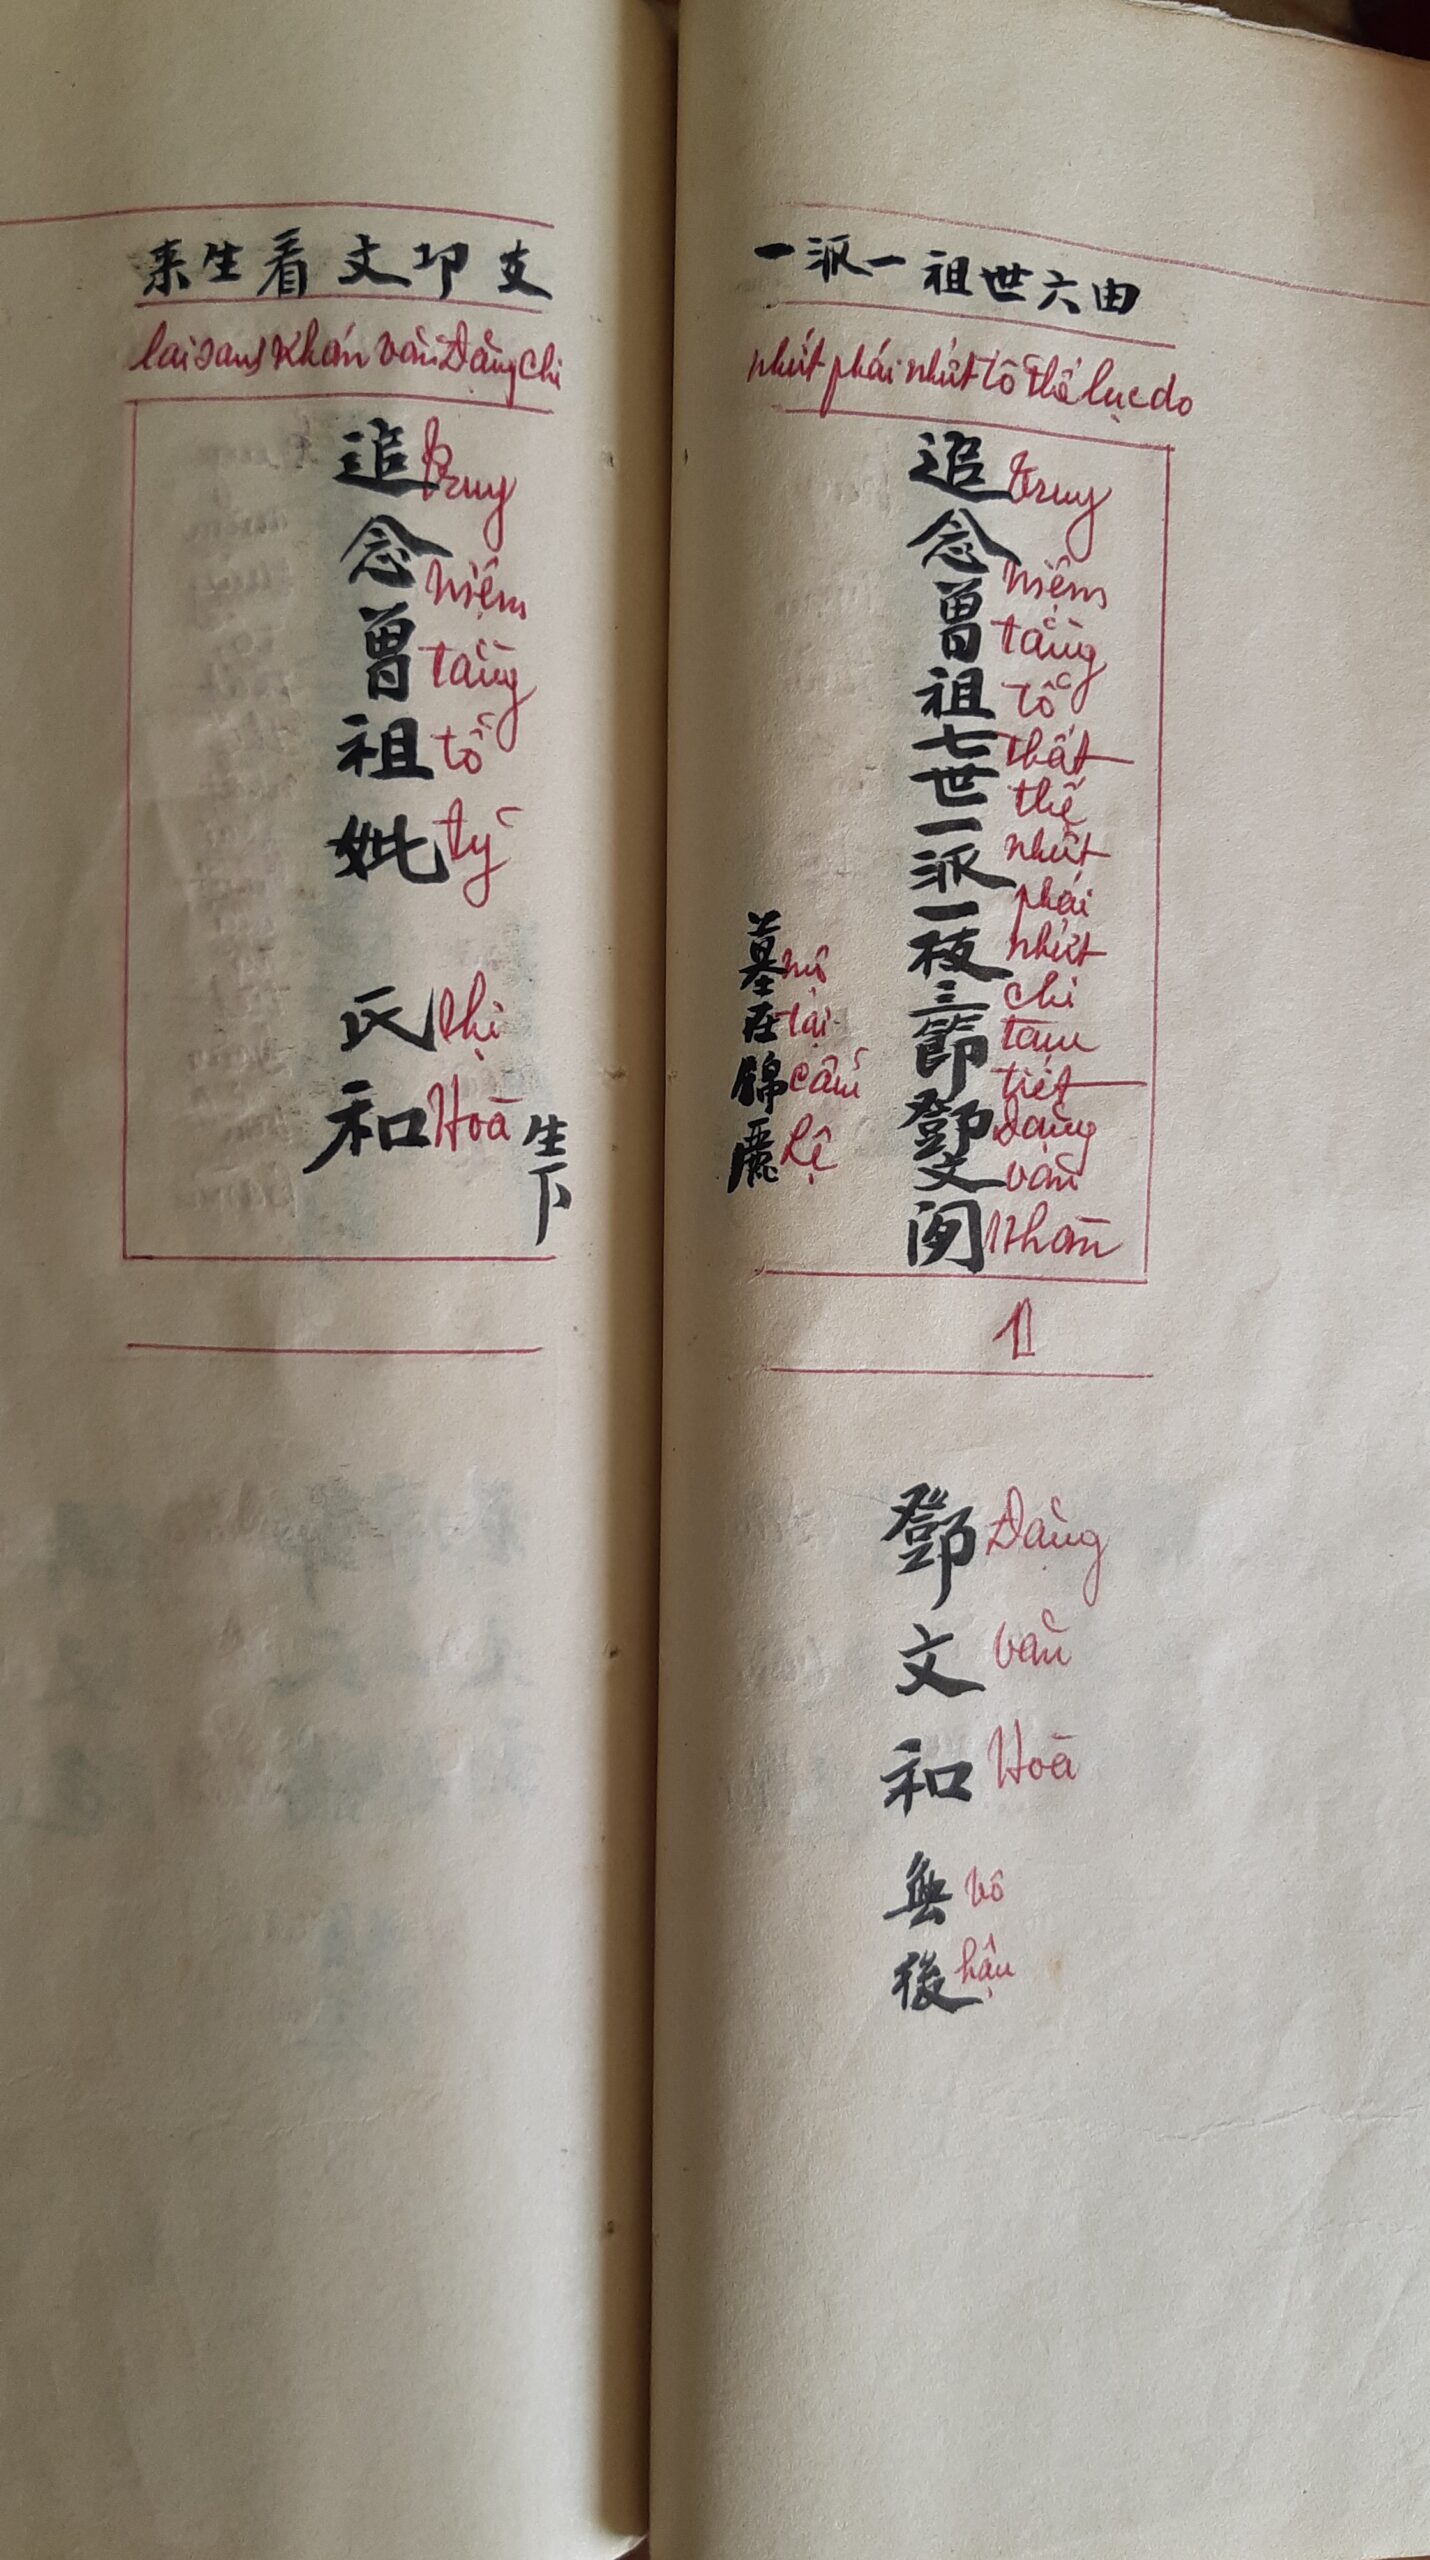 由六世祖一派一
nhứt phái nhứt tổ thế lục do
追念曾祖七世一派一枝三節鄧文闵
truy niệm tằng tổ thất thế nhứt phái nhứt chi tam tiết Đặng văn Nhàn
墓在錦麗
mộ tại cẩm lệ
1
鄧文和
Đặng văn Hoà
無後
vô hậu
支邛文看生来
lai sanh khán văn Đặng chi
追念曾祖妣 氏和
truy niệm tằng tổ tỷ thị Hoà
生下